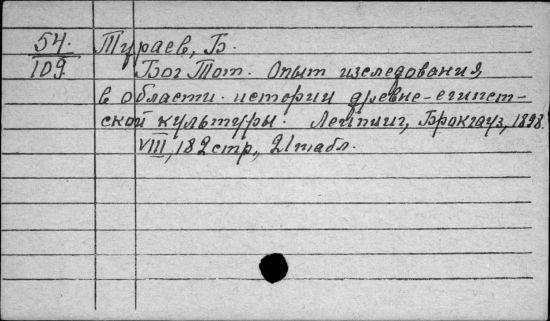 54. Тураев, Б.
109. Бог Тот. Опыт изследования
в области истории древне-египет-
ской культуры. Лейпциг, Брокгауз, 1898.
VIII, 182 стр., 21 табл.